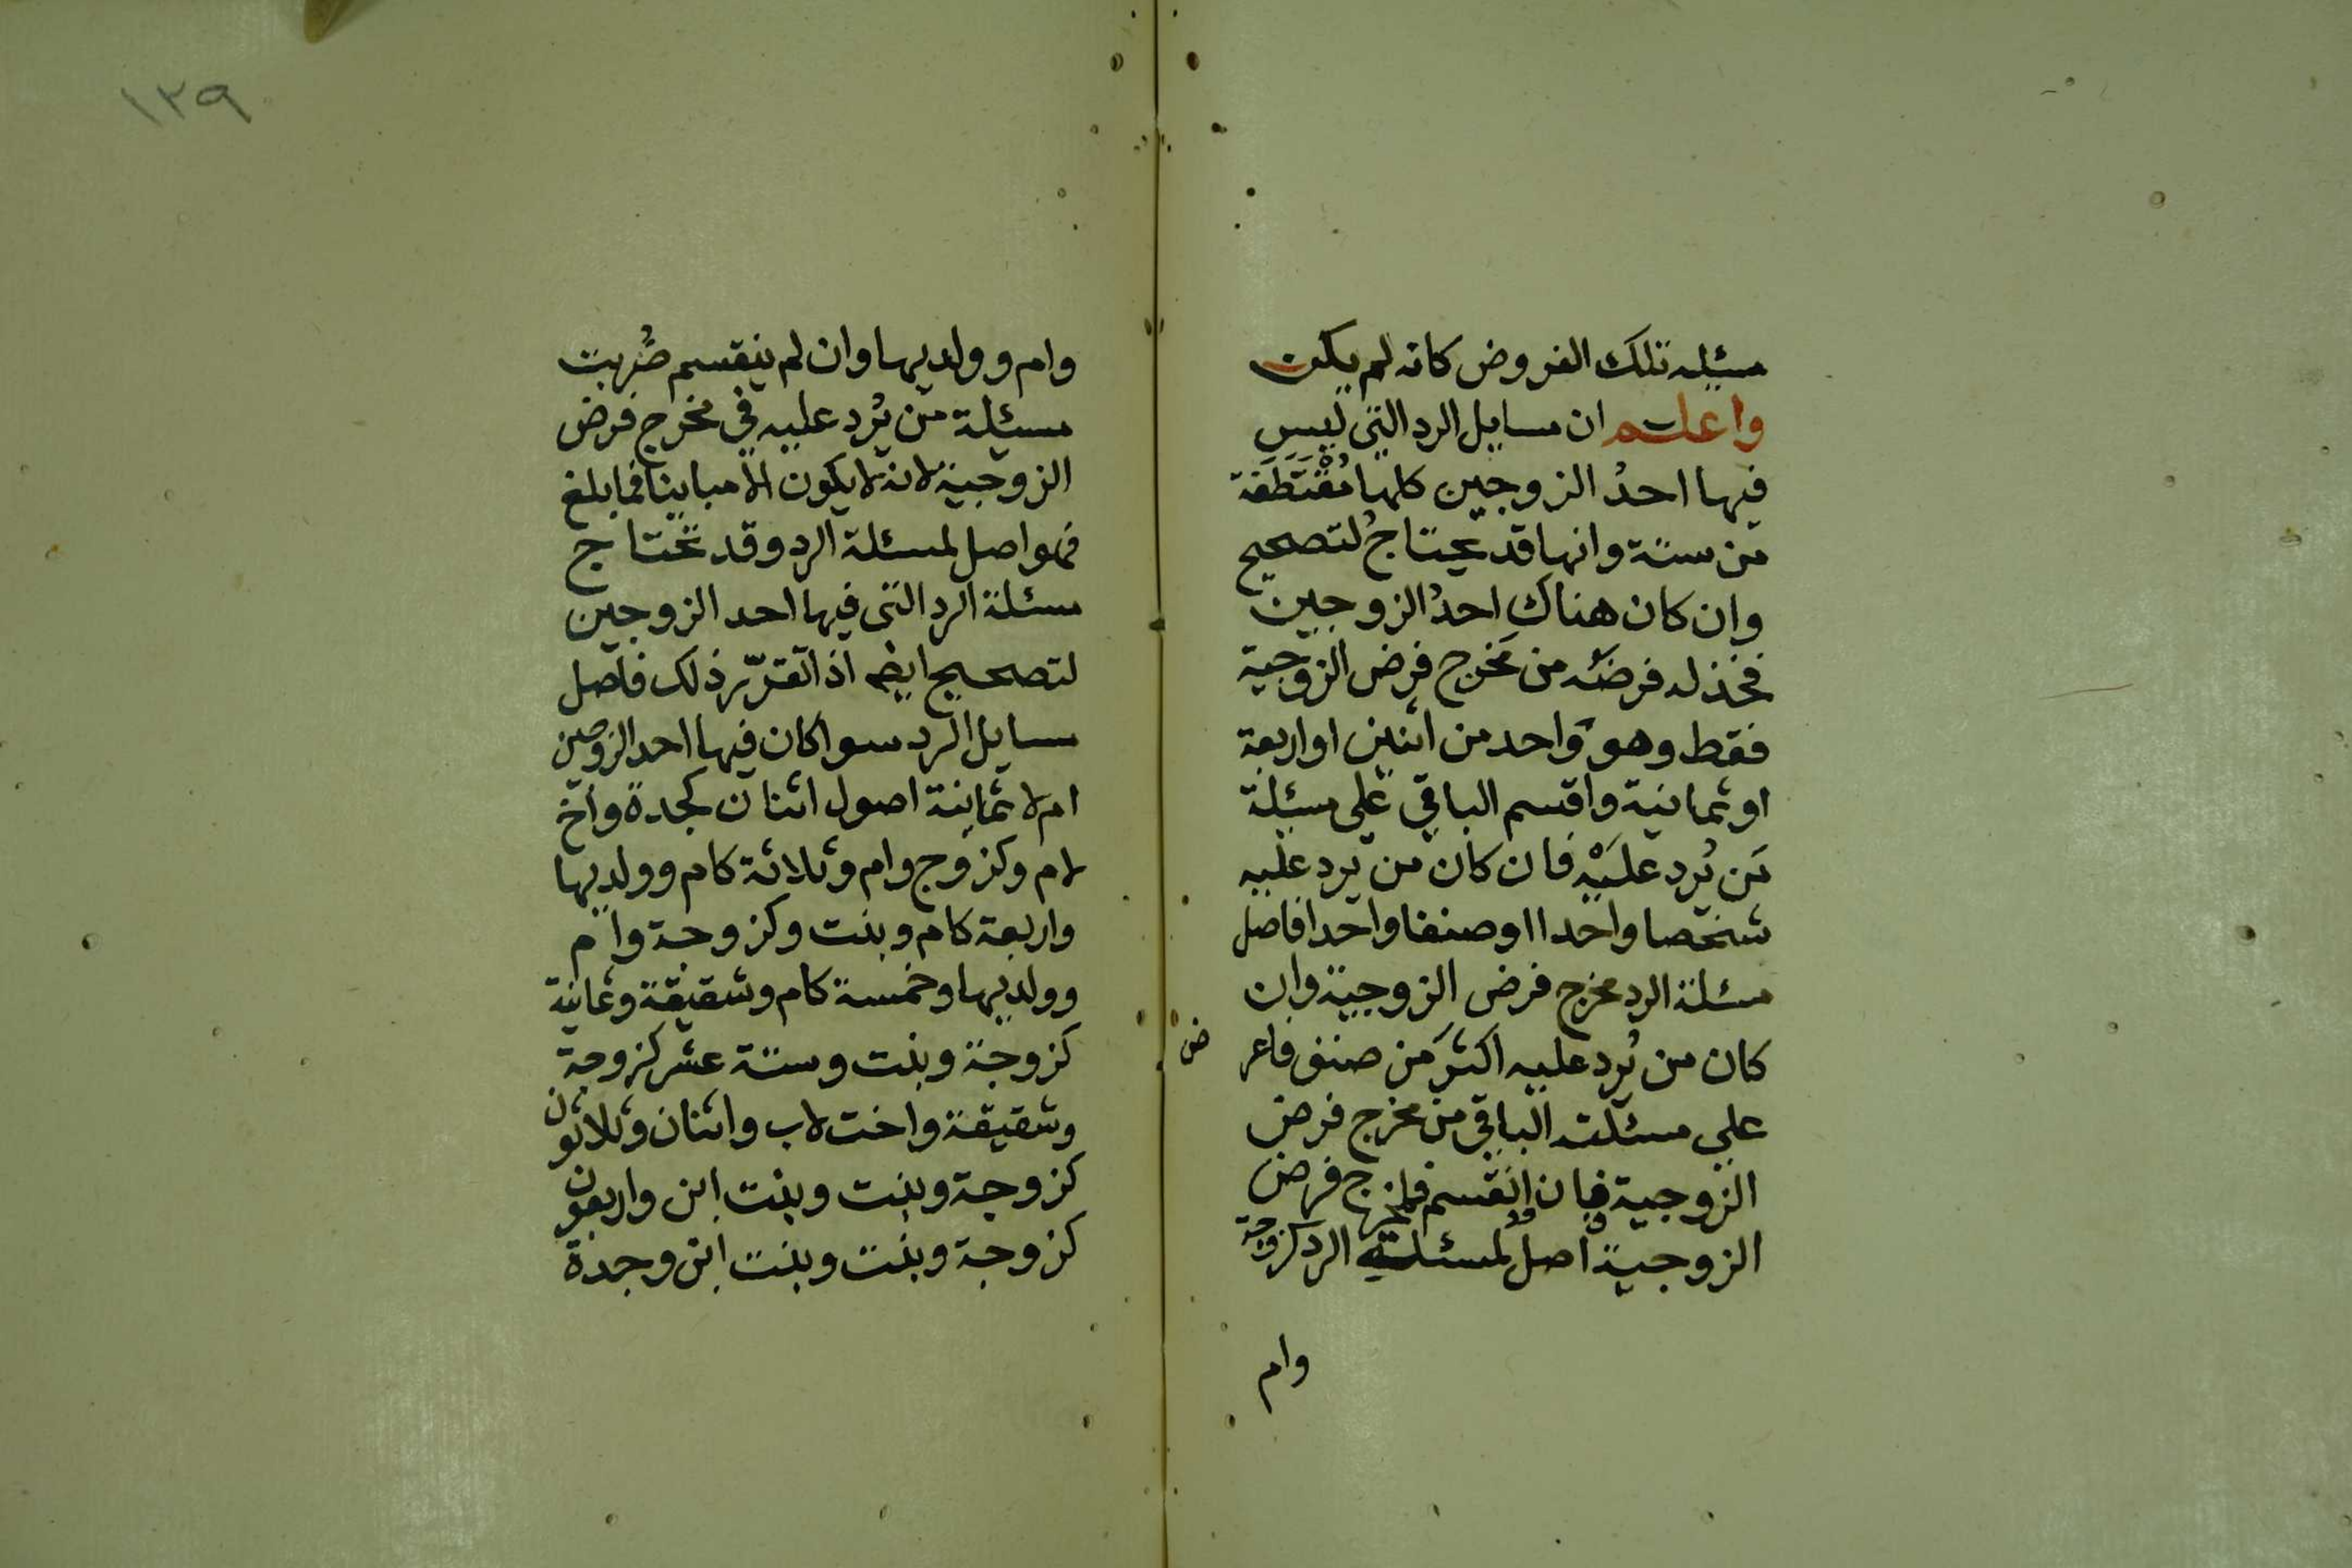 مسئلة تلك الفروض كانه لم يكن
واعلم ان مسايل الرد التي ليس
فيها احدُ الزوجين كلها مُقْتَطَفة
من ستة وانها قد تحتاجُ لتصحيح
وان كان هناك احدُ الزوجين
فخذ له فرضَه من مخرج فرض الزوجية
فقط وهو واحد من اثنين او اربعة
او ثمانية واقسم الباقي على مسئلة
مَن يُرد علَيْه فان كان من يرد عليه
شخصا واحدا او صنفا واحدا فاصل
مسئلة الرد مخرج فرض الزوجية وان
كان من يُرد عليه اكثَر من صنف فاعر ض
على مسئلته الباقي من مخرج فرض
الزوجية فان انقسم فمخرج فرض
الزوجية اصل لمسئلة الرد كزوجة
وام
١٣٩
وام وولديها وان لم ينقسم ضُربت
مسئلة من يُرد عليه في مخرج فرض
الزوجية لانه لا يكون الا مباينا فما بلغ
فهو اصل لمسئلة الرد وقد تحتاج
مسئلة الرد التي فيها احد الزوجين
لتصحيح ايضا اذا تقرّر ذلك فاصل
مسايل الرد سوا كان فيها احد الزوجين
ام لا ثمانية اصول اثنان كجدة واخ
لام وكزوج وام وثلاثة كام وولديها
واربعة كام وبنت وكزوجة وام
وولديها وخمسة كام وشقيقة وثمانية
كزوجة وبنت وستة عشر كزوجة
وشقيقة واخت لاب واثنان وثلاثون
كزوجة وبنت وبنت ابن واربعون
كزوجة وبنت وبنت ابن وجدة